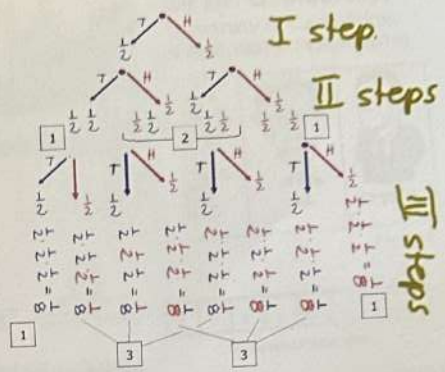 T H
1/2 1/2
I step.
T H T H
1/2 1/2 1/2 1/2 1/2 1/2 1/2 1/2
II steps
1 2 1
T T H T H T H
1/2 1/2 1/2 1/2 1/2 1/2 1/2 1/2
III steps
1/2 · 1/2 · 1/2 = 1/8
1/2 · 1/2 · 1/2 = 1/8
1/2 · 1/2 · 1/2 = 1/8
1/2 · 1/2 · 1/2 = 1/8
1/2 · 1/2 · 1/2 = 1/8
1/2 · 1/2 · 1/2 = 1/8
1/2 · 1/2 · 1/2 = 1/8
1/2 · 1/2 · 1/2 = 1/8
1 3 3 1